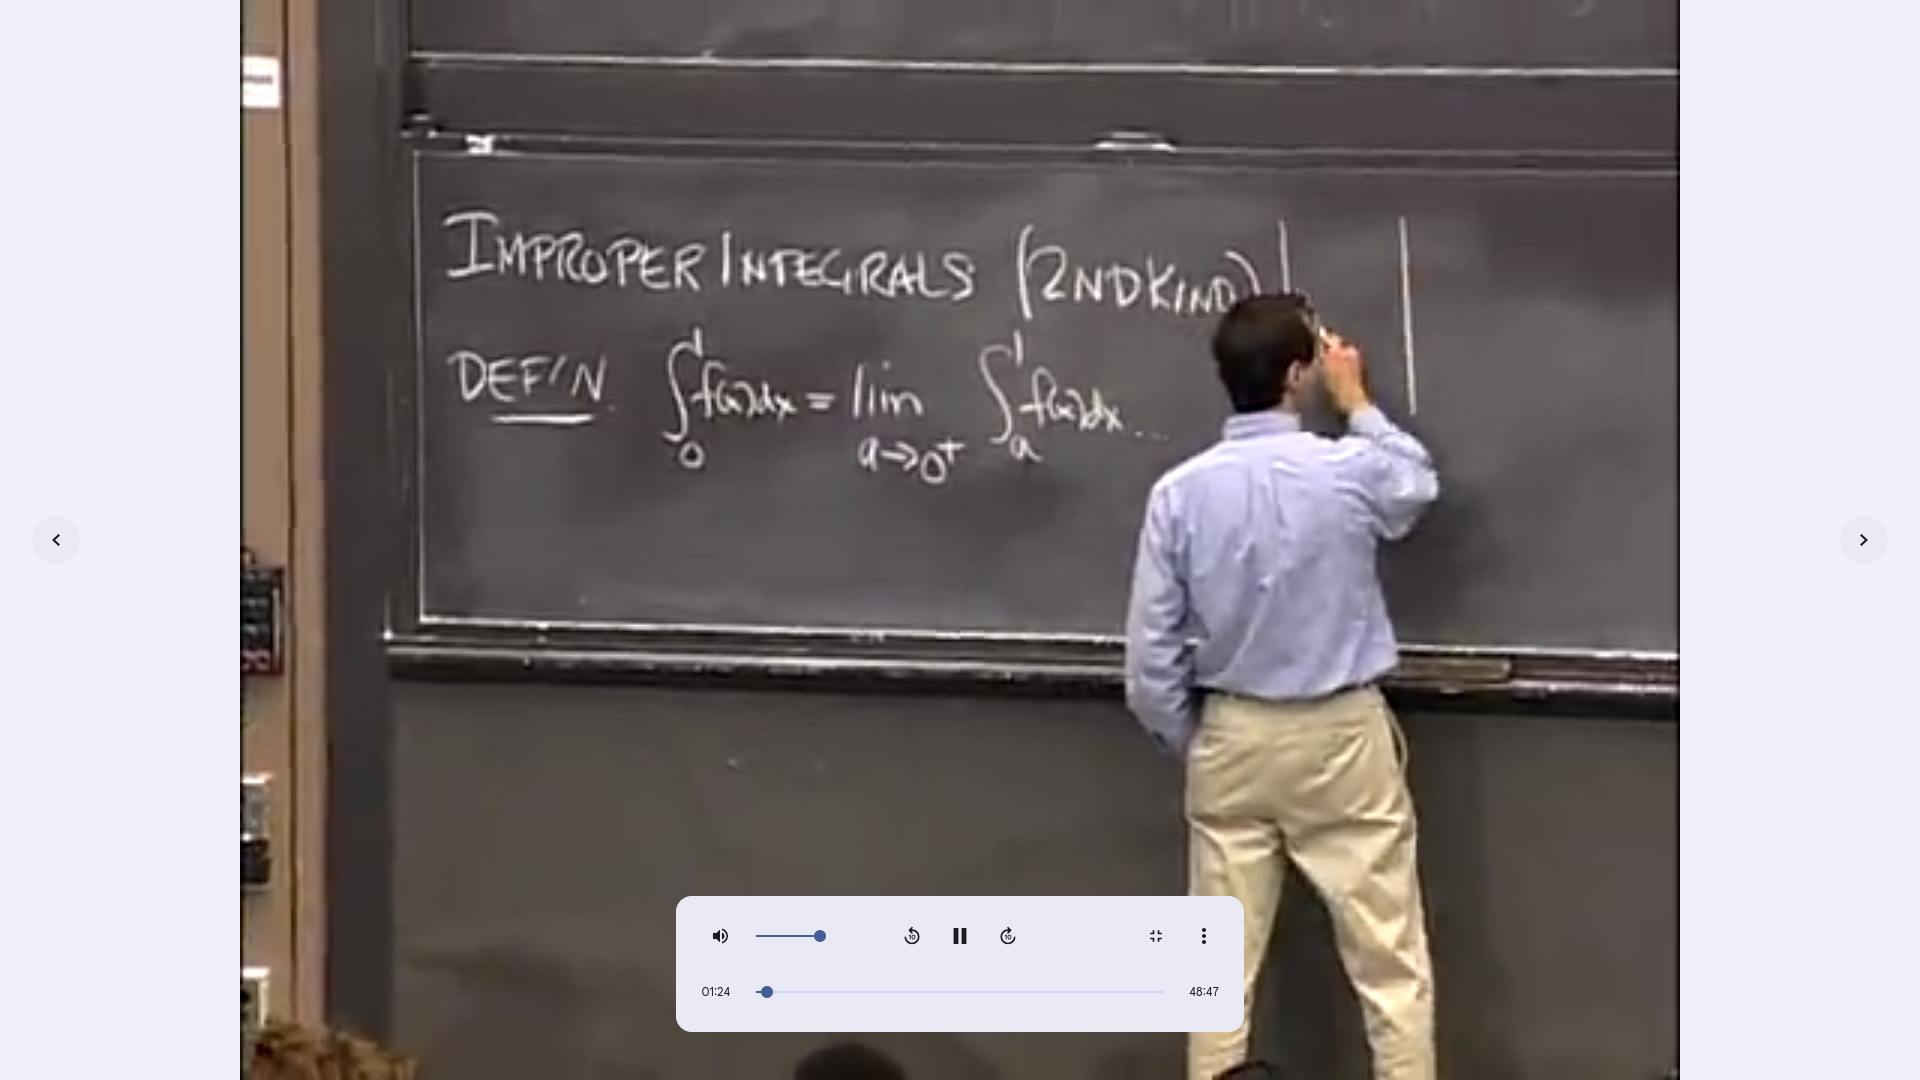 IMPROPER INTEGRALS (2ND KIND)
DEF'N ∫₀¹ f(x)dx = lim a→0⁺ ∫ₐ¹ f(x)dx ...
10 10
01:24 48:47